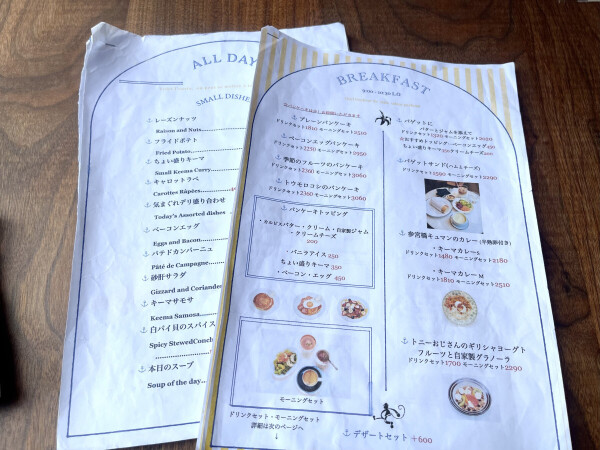 ALL DAY
SMALL DISHE
レーズンナッツ
Raison and Nuts
フライドポテト
Fried Potato
ちょい盛りキーマ
Small Keema Curry
キャロットラペ
Carottes Râpées
気まぐれデリ盛り合わせ
Today's Assorted dishes
ベーコンエッグ
Eggs and Bacon
パテドカンパーニュ
Pâté de Campagne
砂肝サラダ
Gizzard and Coriander
キーマサモサ
Keema Samosa
白バイ貝のスパイス
Spicy StewedConch
本日のスープ
Soup of the day
BREAKFAST
プレーンパンケーキ
ドリンクセット1810 モーニングセット2510
ベーコンエッグパンケーキ
ドリンクセット2250 モーニングセット2950
季節のフルーツのパンケーキ
ドリンクセット2360 モーニングセット3060
トウモロコシのパンケーキ
ドリンクセット2360 モーニングセット3060
パンケーキトッピング
・カルピスバター・クリーム・自家製ジャム
・クリームチーズ
200
・バニラアイス 250
ちょい盛りキーマ 350
・ベーコン・エッグ 450
モーニングセット
ドリンクセット・モーニングセット
詳細は次のページへ
↓
バゲットに
バターとジャムを添えて
バゲットサンド(ハムとチーズ)
ドリンクセット1590 モーニングセット2290
参宮橋キュマンのカレー
・キーマカレーS
ドリンクセット1480 モーニングセット2180
・キーマカレー M
ドリンクセット1810 モーニングセット2510
トニーおじさんのギリシャヨーグト
フルーツと自家製グラノーラ
ドリンクセット1700 モーニングセット2290
デザートセット +600